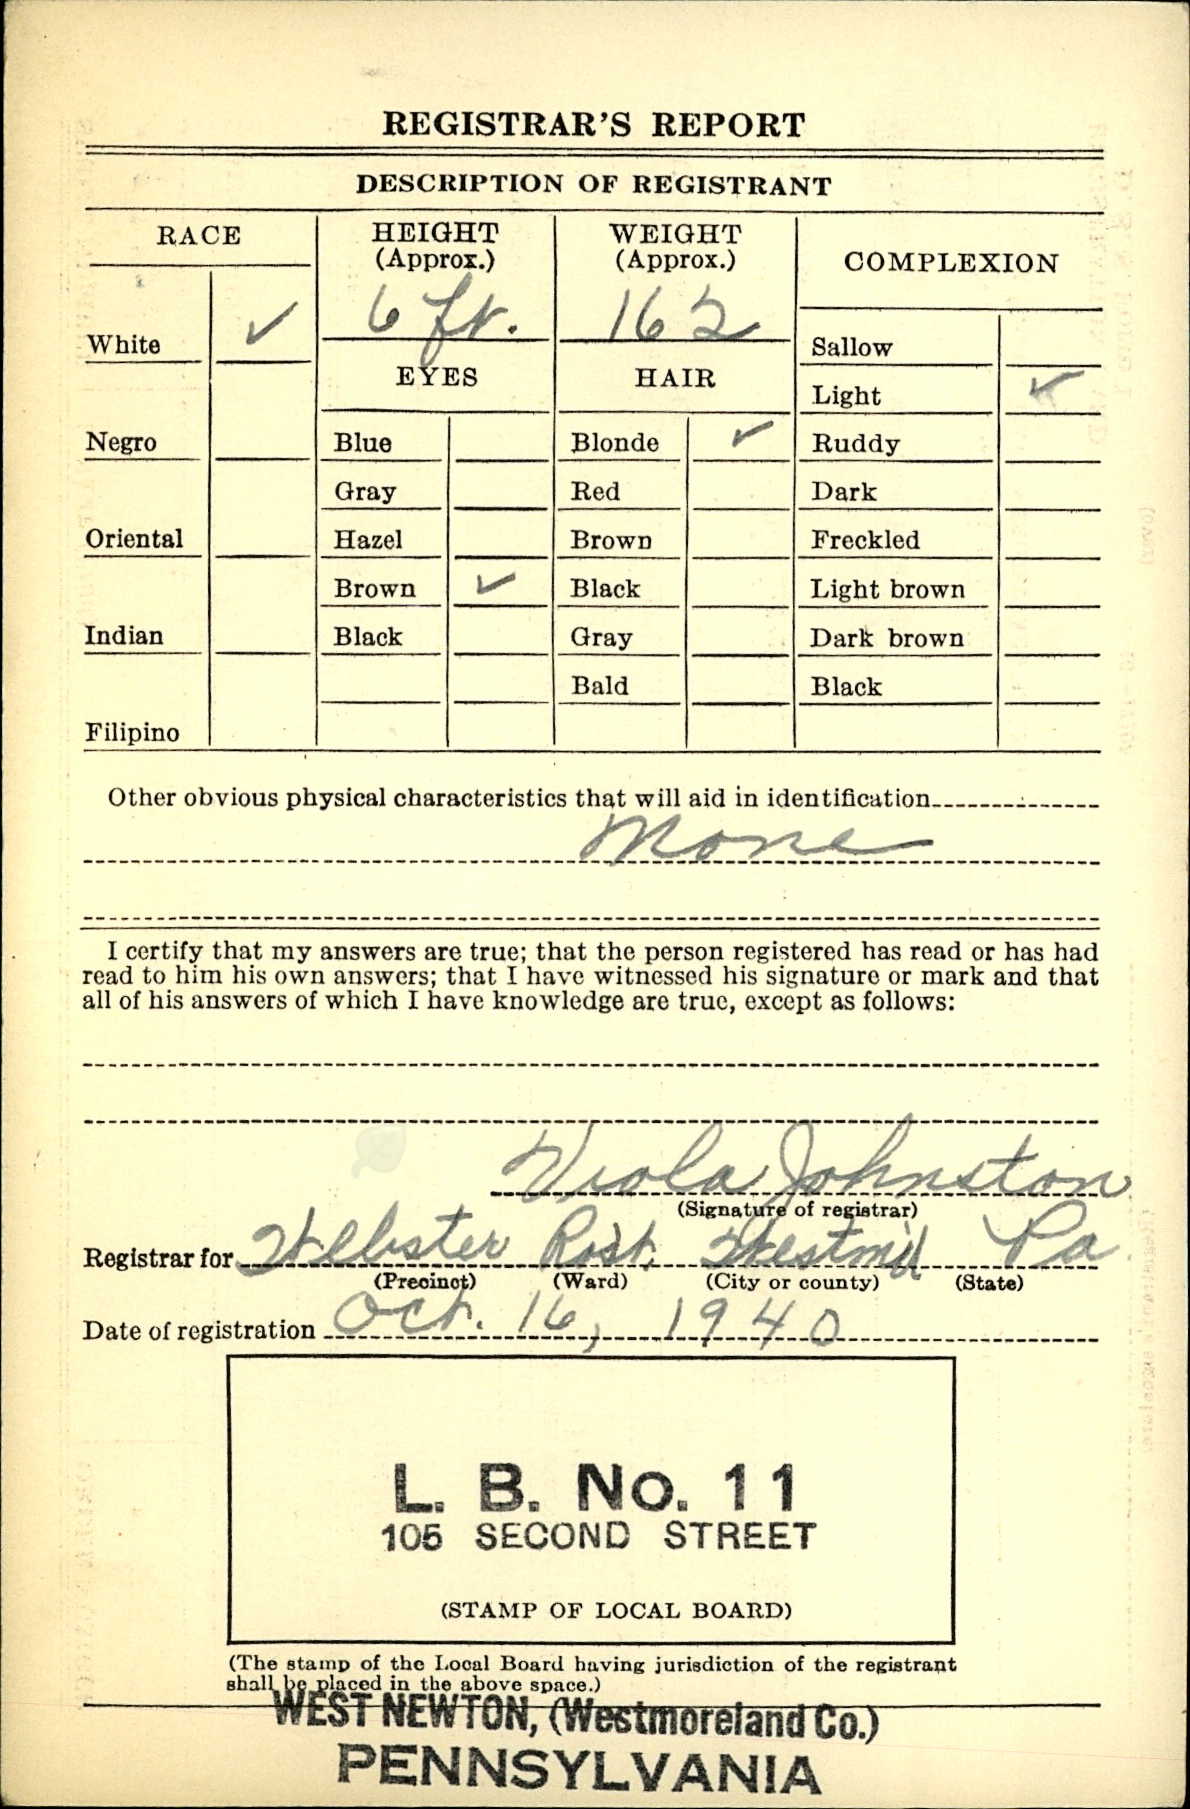 REGISTRAR'S REPORT
DESCRIPTION OF REGISTRANT
RACE
HEIGHT
(Approx.)
WEIGHT
(Approx.)
COMPLEXION
6 ft.
162
White ✓
Sallow
EYES
HAIR
Light ✓
Negro
Blue
Blonde ✓
Ruddy
Gray
Red
Dark
Oriental
Hazel
Brown
Freckled
Brown ✓
Black
Light brown
Indian
Black
Gray
Dark brown
Bald
Black
Filipino
Other obvious physical characteristics that will aid in identification
None
I certify that my answers are true; that the person registered has read or has had
read to him his own answers; that I have witnessed his signature or mark and that
all of his answers of which I have knowledge are true, except as follows:
Viola Johnston
(Signature of registrar)
Registrar for Webster Rost. Westm'd Pa
(Precinct) (Ward) (City or county) (State)
Date of registration Oct. 16, 1940
L. B. No. 11
105 SECOND STREET
(STAMP OF LOCAL BOARD)
(The stamp of the Local Board having jurisdiction of the registrant
shall be placed in the above space.)
WEST NEWTON, (Westmoreland Co.)
PENNSYLVANIA